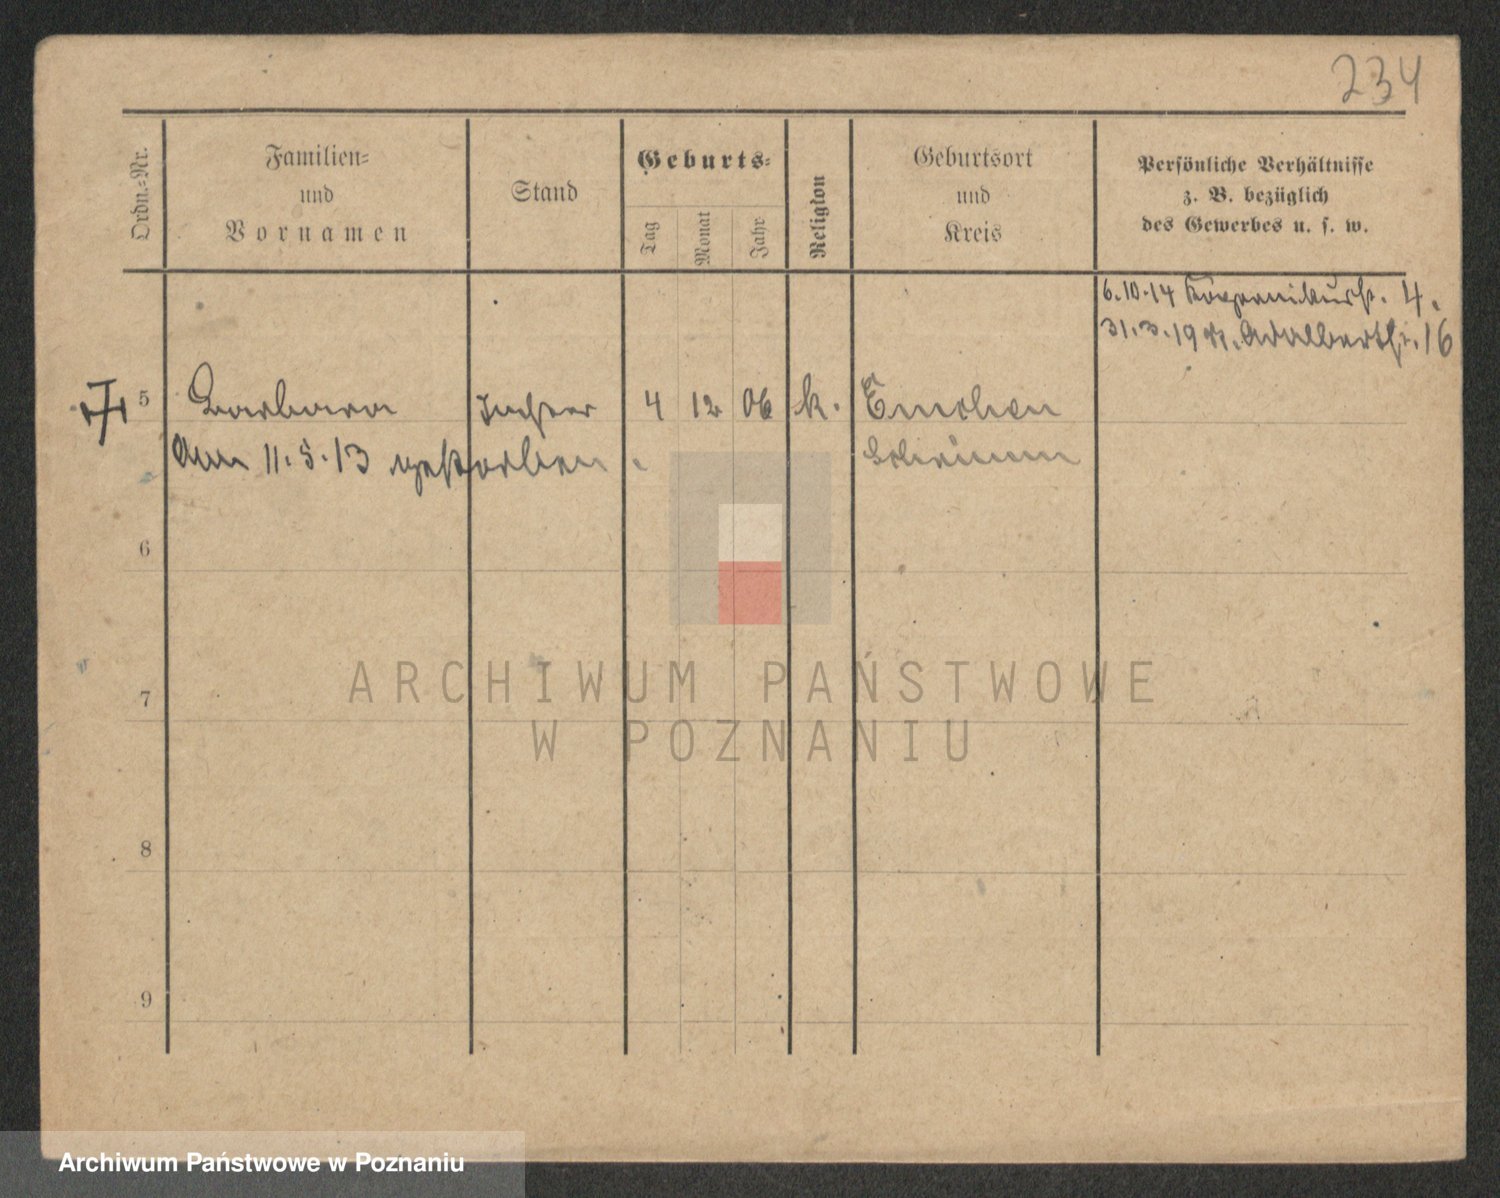 234
Ordn.=Nr.
Familien=
und
Vornamen
Stand
Geburts=
Tag
Monat
Jahr
Religion
Geburtsort
und
Kreis
Persönliche Verhältnisse
z. B. bezüglich
des Gewerbes u. s. w.
6.10.14 4.
31.3.19 Adalbertstr. 16
5 Barbara Tochter 4 12 06 k. Emchen
Am 11.5.13 gestorben. Schrimm
6
7
8
9
ARCHIWUM PAŃSTWOWE
W POZNANIU
Archiwum Państwowe w Poznaniu